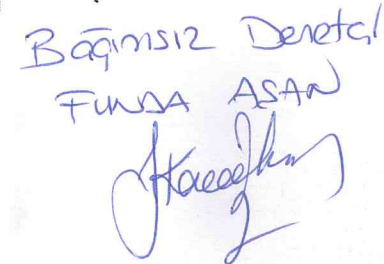 Bağımsız Denetçi
FUNDA ASAN